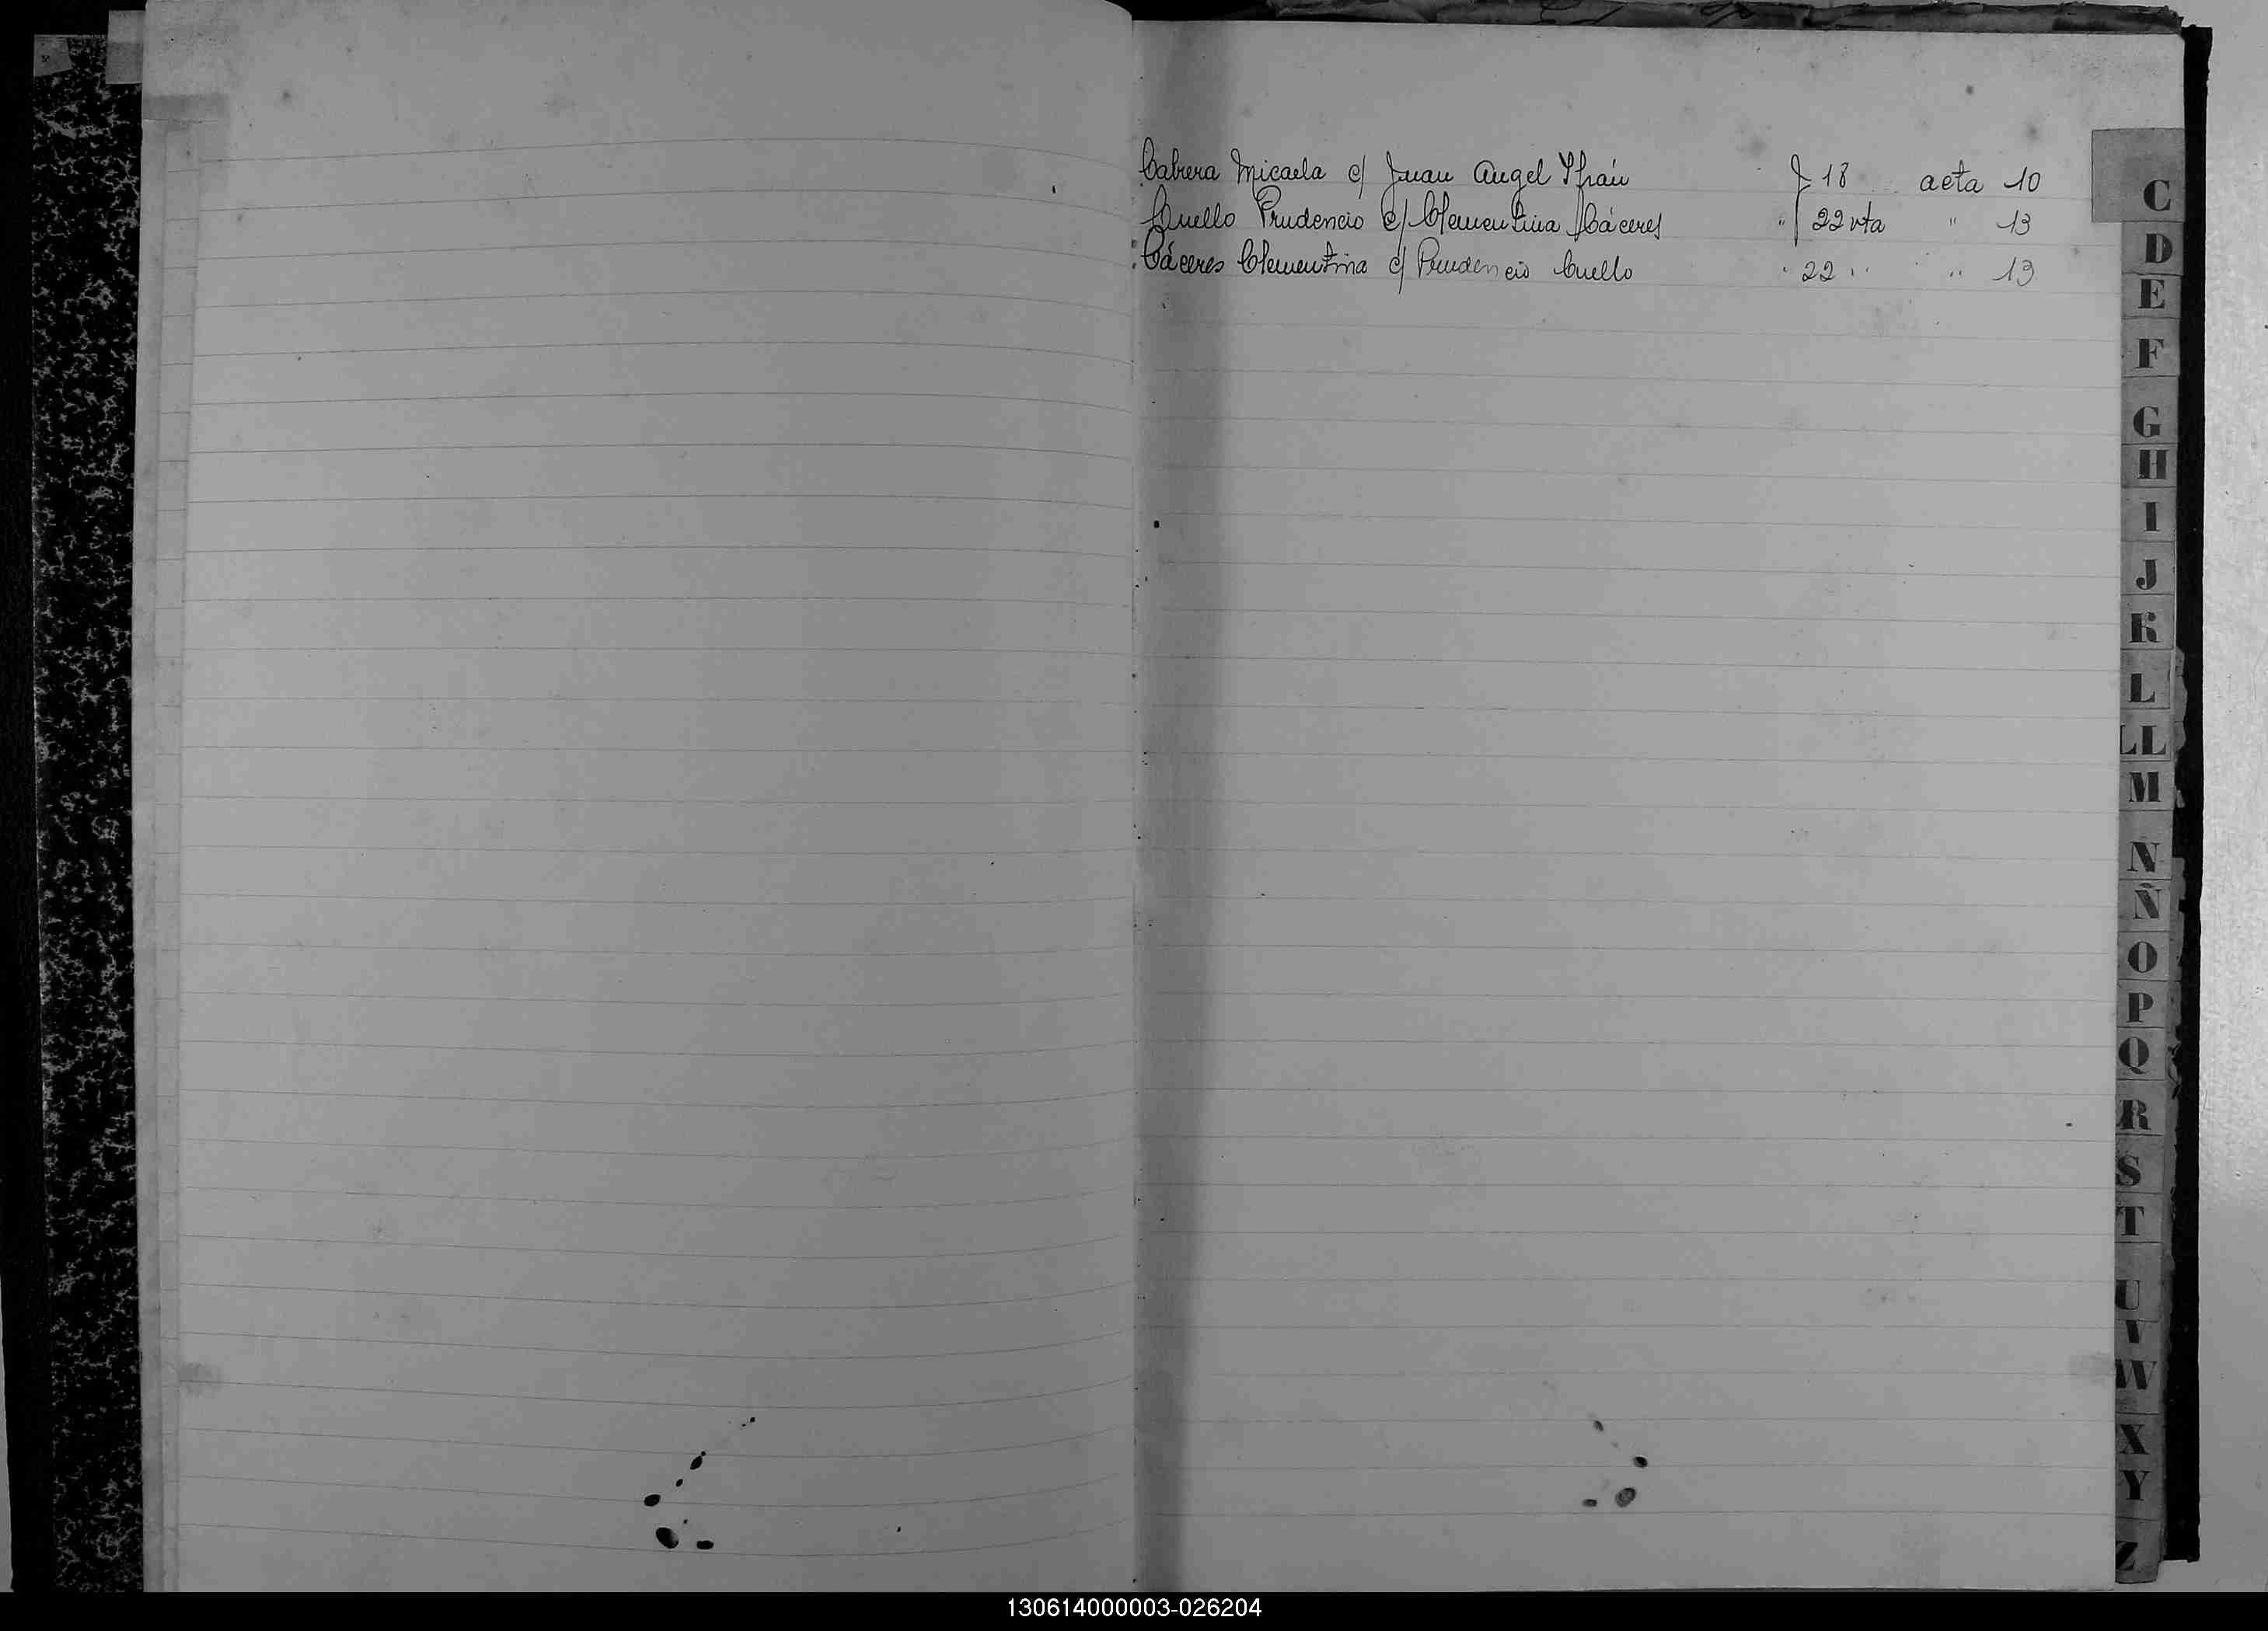 Cabrera Micaela c/ Juan Angel Yfrán f 18 acta 10
Cuello Prudencio c/ Clementina Cáceres " 22 vta " 13
Cáceres Clementina c/ Prudencio Cuello " 22 " " 13
C
D
E
F
G
H
I
J
K
L
LL
M
N
Ñ
O
P
Q
R
S
T
U
V
W
X
Y
Z
130614000003-026204